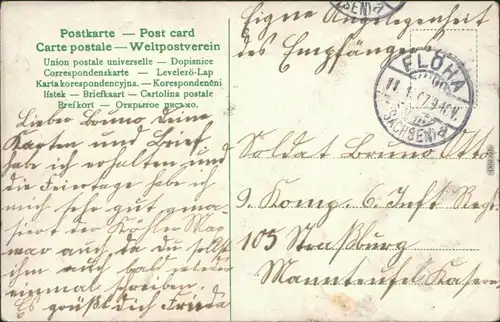 Postkarte — Post card
Carte postale — Weltpostverein
Union postale universelle — Dopisnice
Correspondenskarte — Levelező-Lap
Karta korespondencyjna. — Korespondenční
lístek — Briefkaart — Cartolina postale
Brefkort — Открытое письмо.
Lieber Bruno Deine
Karten und Brief
hab ich erhalten und
die Feiertage hab ich
mich sehr gut
der Köhler Max
war auch da du sollst
ihm auch bald wieder
einmal schreiben.
Es grüßt dich Frieda
Eigne Angelegenheit
des Empfängers
SACHSEN) a
FLÖHA
11 1 07 9-10V.
(SACHSEN) a
Soldat Bruno Otto
9. Komp. 6. Inft Regt.
105 Straßburg
Manteufel Kaserne